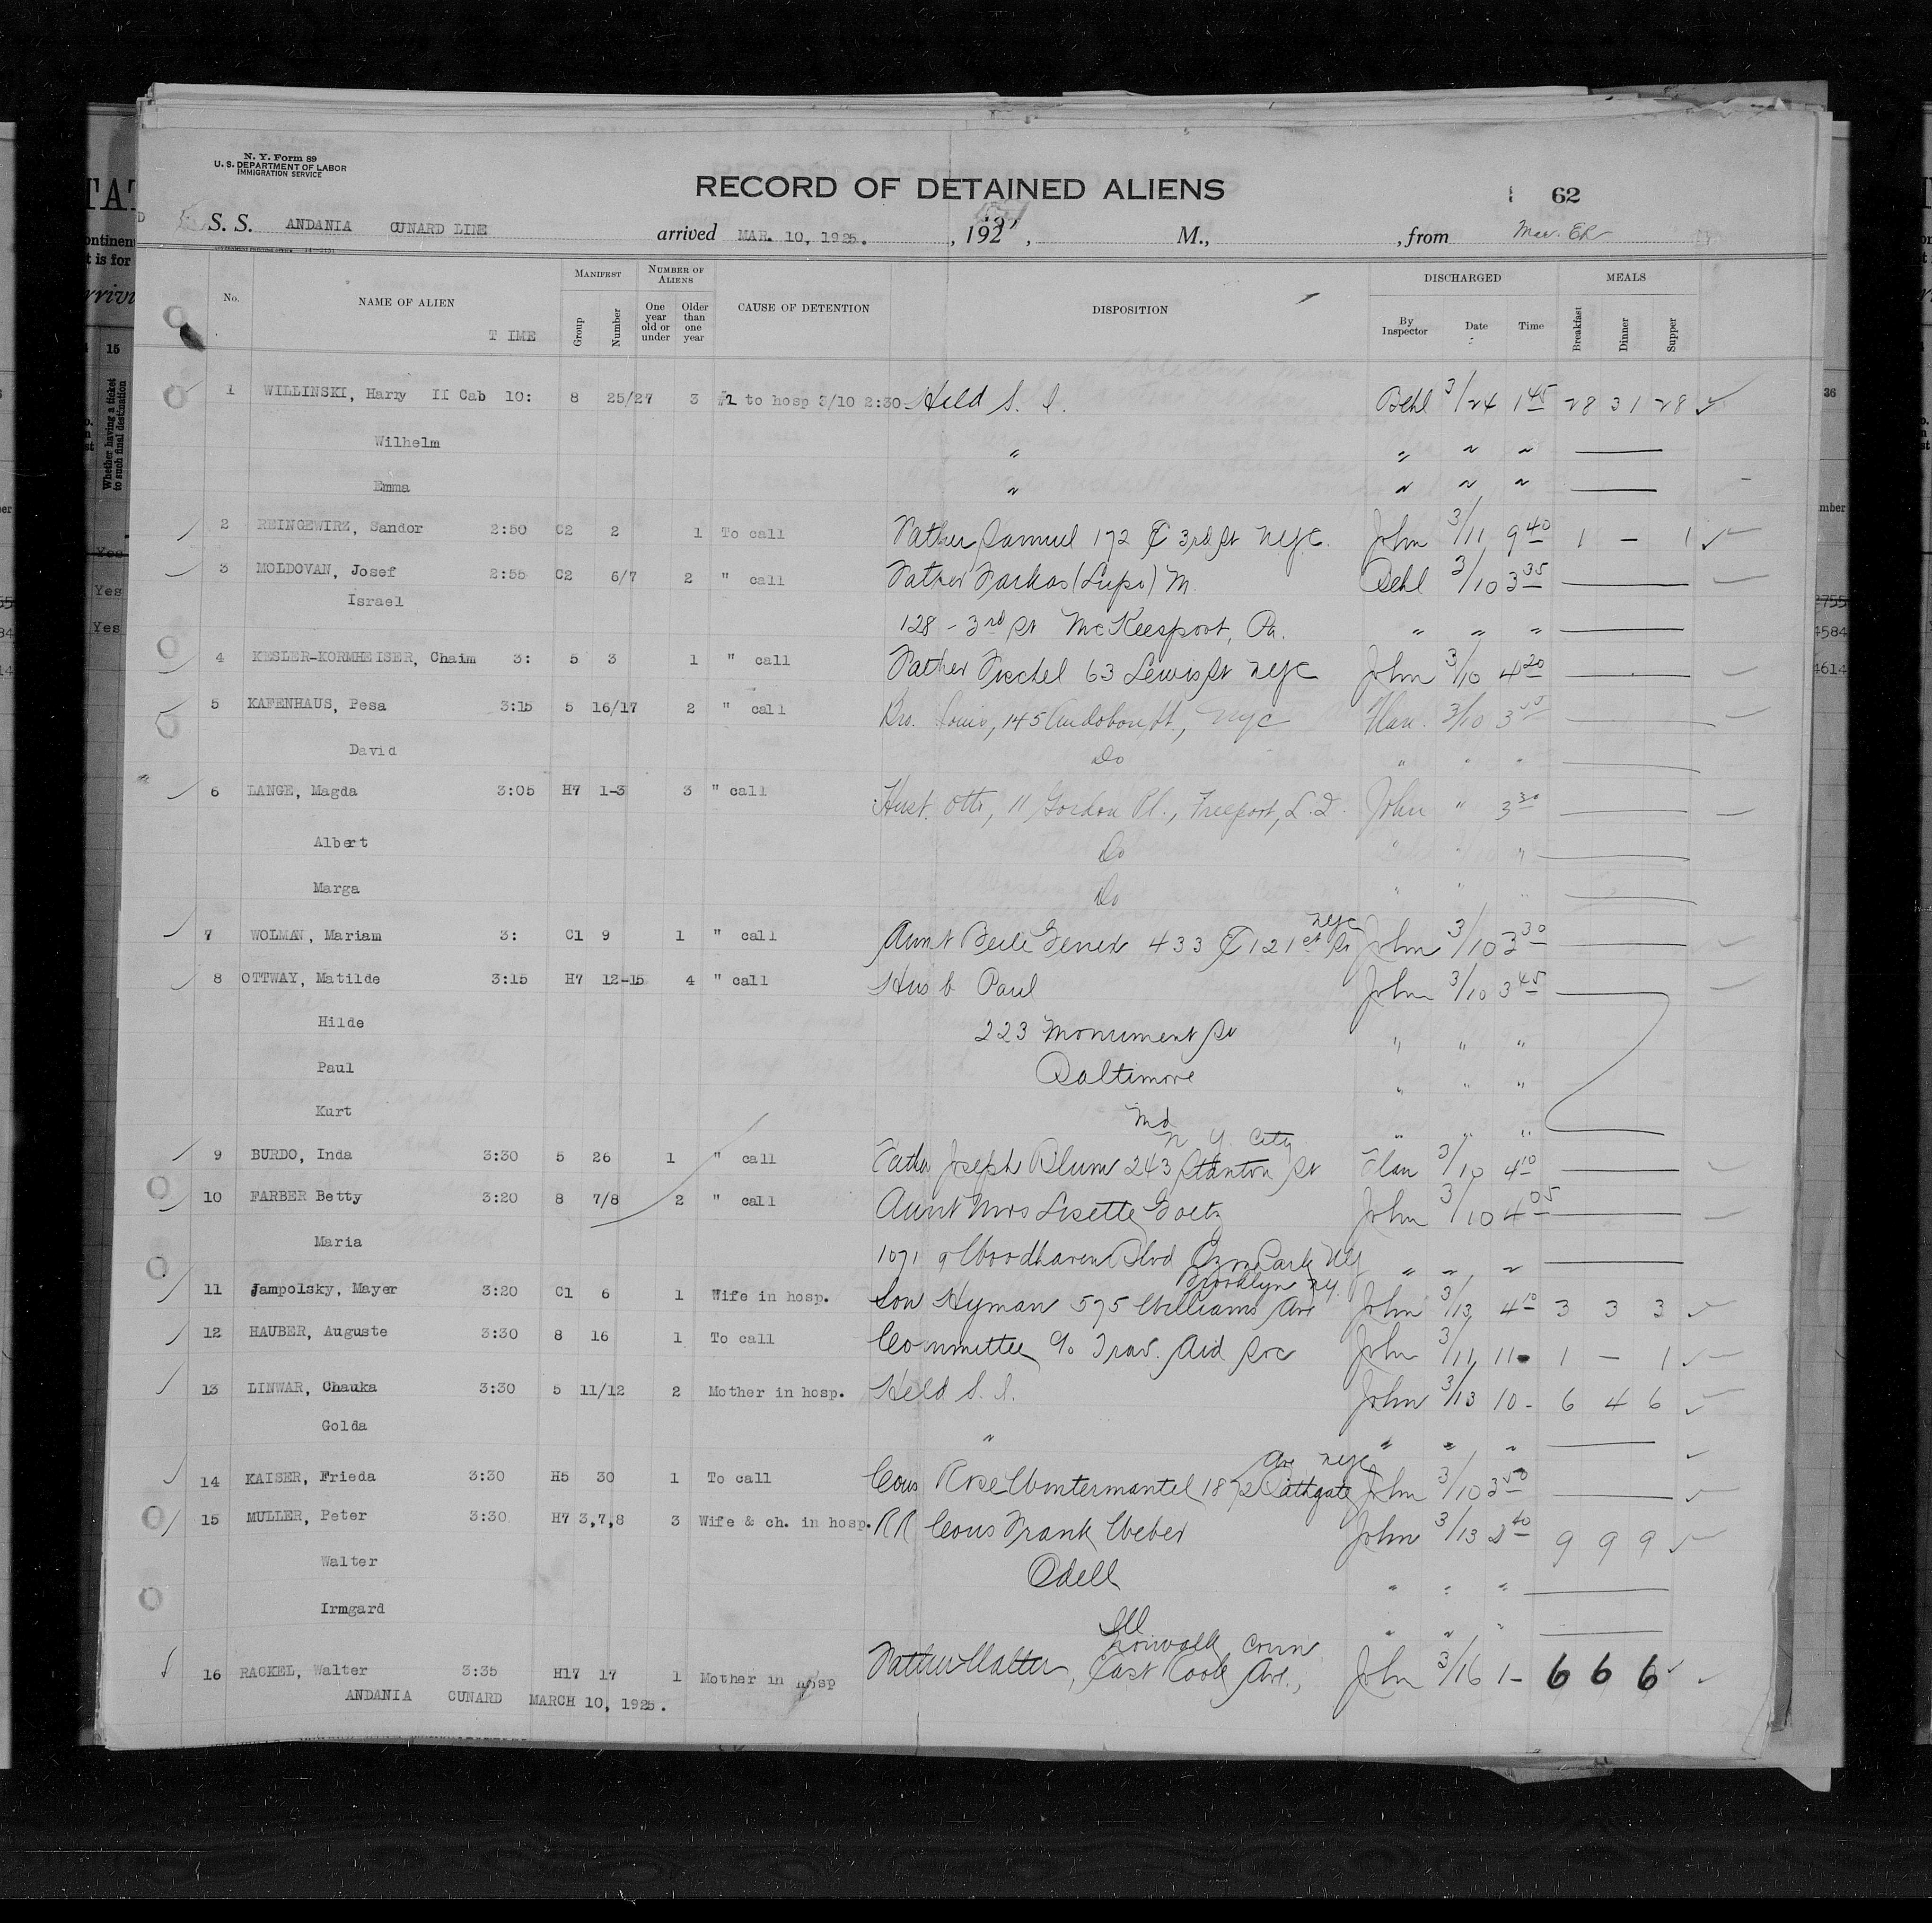 N. Y. Form 89
U. S. DEPARTMENT OF LABOR
IMMIGRATION SERVICE
RECORD OF DETAINED ALIENS
62
S. S. ANDANIA CUNARD LINE arrived MAR. 10, 1925. , 192 , M., , from
No. NAME OF ALIEN TIME MANIFEST Group Number NUMBER OF ALIENS One year old or under Older than one year CAUSE OF DETENTION DISPOSITION DISCHARGED By Inspector Date Time MEALS Breakfast Dinner Supper
1 WILLINSKI, Harry II Cab 10: 8 25/27 3 #2 to hosp 3/10 2:30 Held S. I. Behl 3/24 1 45 28 31 28
Wilhelm " " " "
Emma " " " "
2 REINGEWIRZ, Sandor 2:50 C2 2 1 To call Father Samuel 172 E 3rd St NYC John 3/11 9 40 1 — 1
3 MOLDOVAN, Josef 2:55 C2 6/7 2 " call Father Farkas (Lupo) M. Behl 3/10 3 35
Israel
128 - 3rd St McKeesport, Pa. " " "
4 KESLER-KORMHEISER, Chaim 3: 5 3 1 " call Father Fischel 63 Lewis St NYC John 3/10 4 20
5 KAFENHAUS, Pesa 3:15 5 16/17 2 " call Bro. Louis, 145 Audobon, NYC Flan. 3/10 3
David Do " " "
6 LANGE, Magda 3:05 H7 1-3 3 " call Husb. Otto, 11 Gordon Pl., Freeport, L.I. John " 3 30
Albert Do " " "
Marga Do " " "
NYC
7 WOLMAN, Mariam 3: C1 9 1 " call Aunt Beile 433 E 121st St John 3/10 3 30
8 OTTWAY, Matilde 3:15 H7 12-15 4 " call Husb Paul John 3/10 3 45
Hilde 223 Monument St " " "
Paul Baltimore " " "
Kurt Md " " "
N. Y. City
9 BURDO, Inda 3:30 5 26 1 " call Father Joseph Blum 243 Stanton St Flan 3/10 4 10
10 FARBER Betty 3:20 8 7/8 2 " call Aunt Mrs Lisette Goetz John 3/10 4 05
Maria 1071 Woodhaven Blvd Ozone Park NY " " "
Brooklyn NY.
11 Jampolsky, Mayer 3:20 C1 6 1 Wife in hosp. Son Hyman 575 Williams Ave John 3/13 4 10 3 3 3
12 HAUBER, Auguste 3:30 8 16 1 To call Committee c/o Trav. Aid Soc John 3/11 11- 1 — 1
13 LINWAR, Chauka 3:30 5 11/12 2 Mother in hosp. Held S. I. John 3/13 10- 6 4 6
Golda " " " "
Ave NYC
14 KAISER, Frieda 3:30 H5 30 1 To call Cous Rose Wintermantel 1872 Bathgate John 3/10 3 50
15 MULLER, Peter 3:30 H7 3,7,8 3 Wife & ch. in hosp. RR Cous Frank Weber John 3/13 2 40 9 9 9
Walter Odell " " "
Irmgard Ill " " "
Norwalk, Conn
16 RACKEL, Walter 3:35 H17 17 1 Mother in hosp Father Walter, East Rock Ave., John 3/16 1- 6 6 6
ANDANIA CUNARD MARCH 10, 1925.